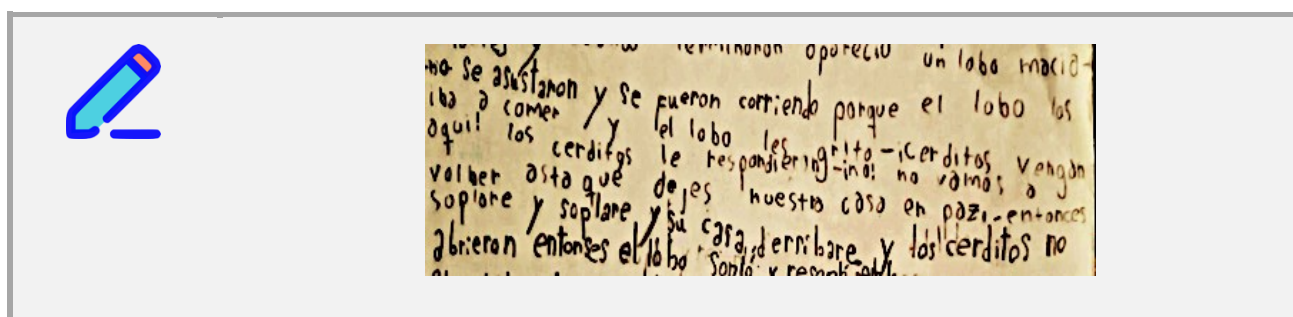 terminaron aparecio un lobo macia-
no se asustaron y se fueron corriendo porque el lobo los
iba a comer y el lobo les grito -¡Cerditos vengan
aqui! los cerditos le respondieron -¡no! no vamos a
volber asta que dejes nuestra casa en paz!.-entonces
soplare y soplare y su casa derribare y los cerditos no
abrieron entonses el lobo soplo y